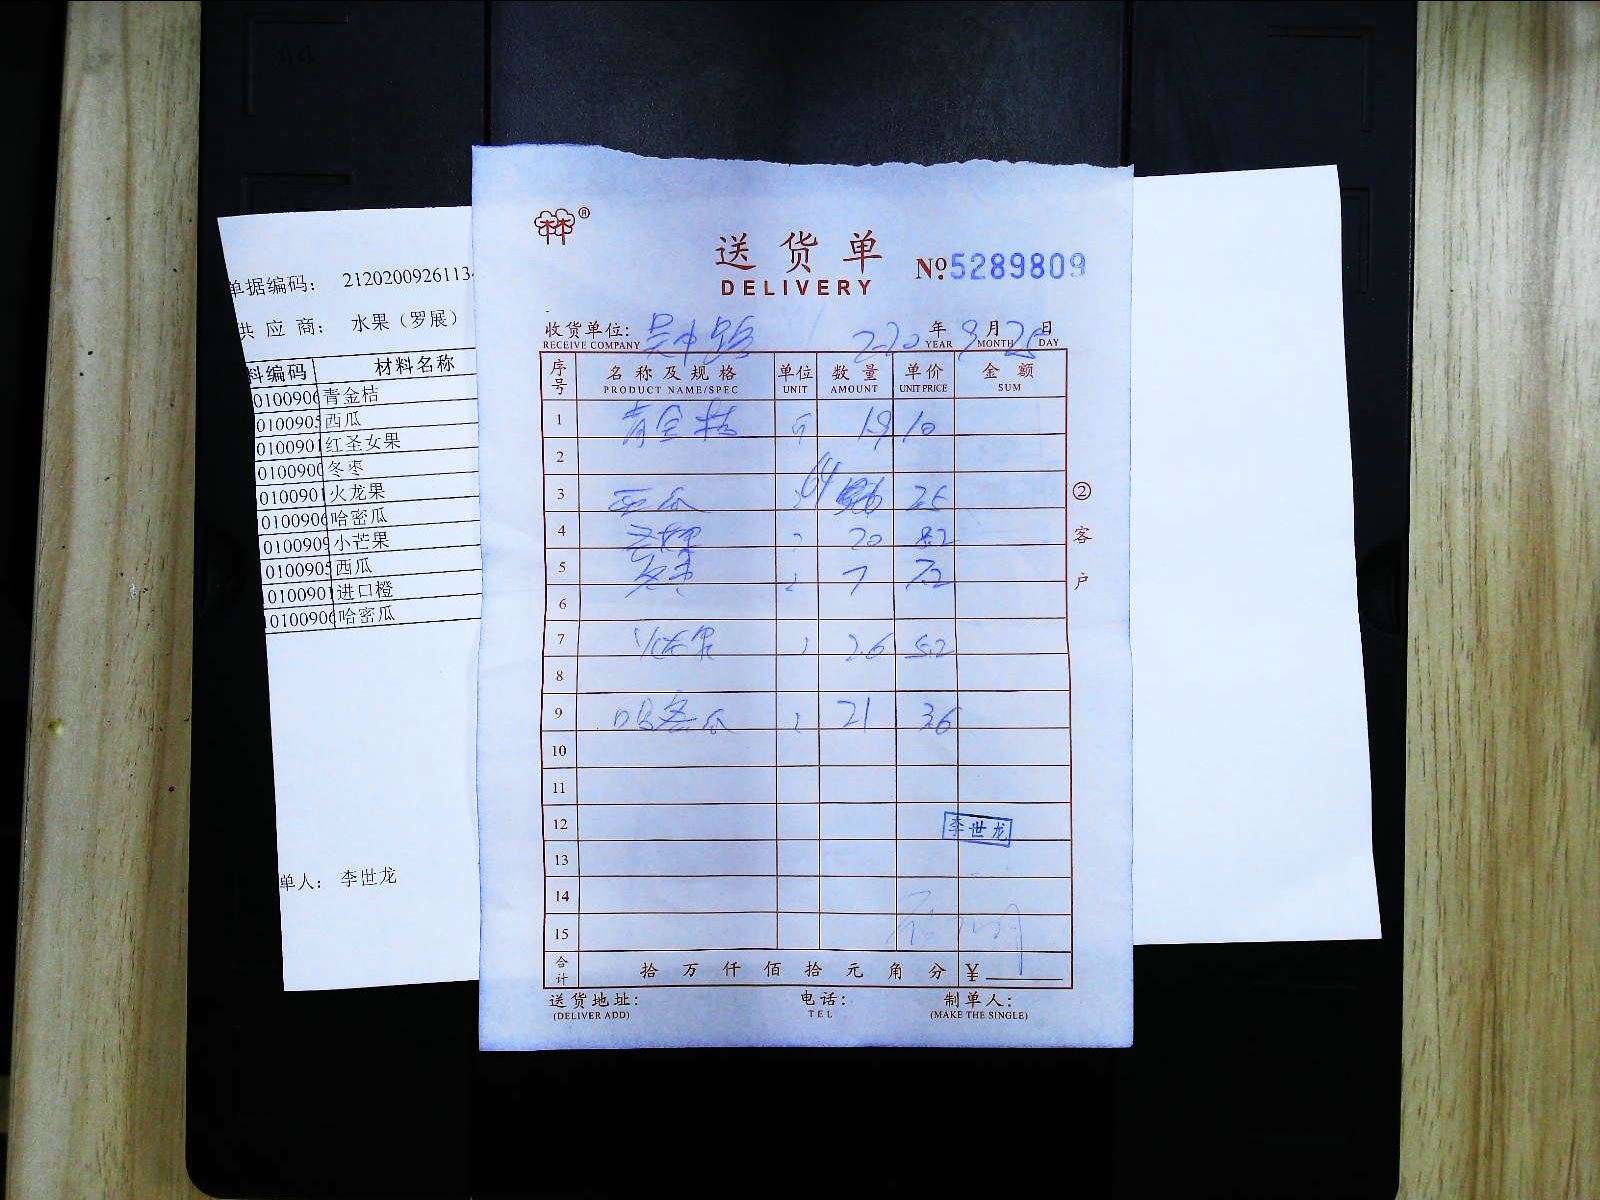 单据编码： 2120200926113
供 应 商： 水果（罗展）
料编码 材料名称
0100906 青金桔
0100905 西瓜
0100901 红圣女果
0100900 冬枣
0100901 火龙果
0100906 哈密瓜
0100909 小芒果
0100905 西瓜
0100901 进口橙
0100906 哈密瓜
单人： 李世龙
林 ®
送货单 No.5289809
DELIVERY
收货单位: 吴中路 2020 年 9 月 25 日
RECEIVE COMPANY YEAR MONTH DAY
序号 名称及规格 单位 数量 单价 金额
PRODUCT NAME/SPEC UNIT AMOUNT UNIT PRICE SUM
1 青金桔 斤 1.9 10
2
3 西瓜 64 2.5
4 20 8.2
5 冬枣 7 7.2
6
7 火龙果 2.6 5.2
8
9 哈密瓜 21 3.6
10
11
12 李世龙
13
14
15
合计 拾 万 仟 佰 拾 元 角 分 ¥
② 客户
送货地址: 电话: 制单人:
(DELIVER ADD) TEL (MAKE THE SINGLE)